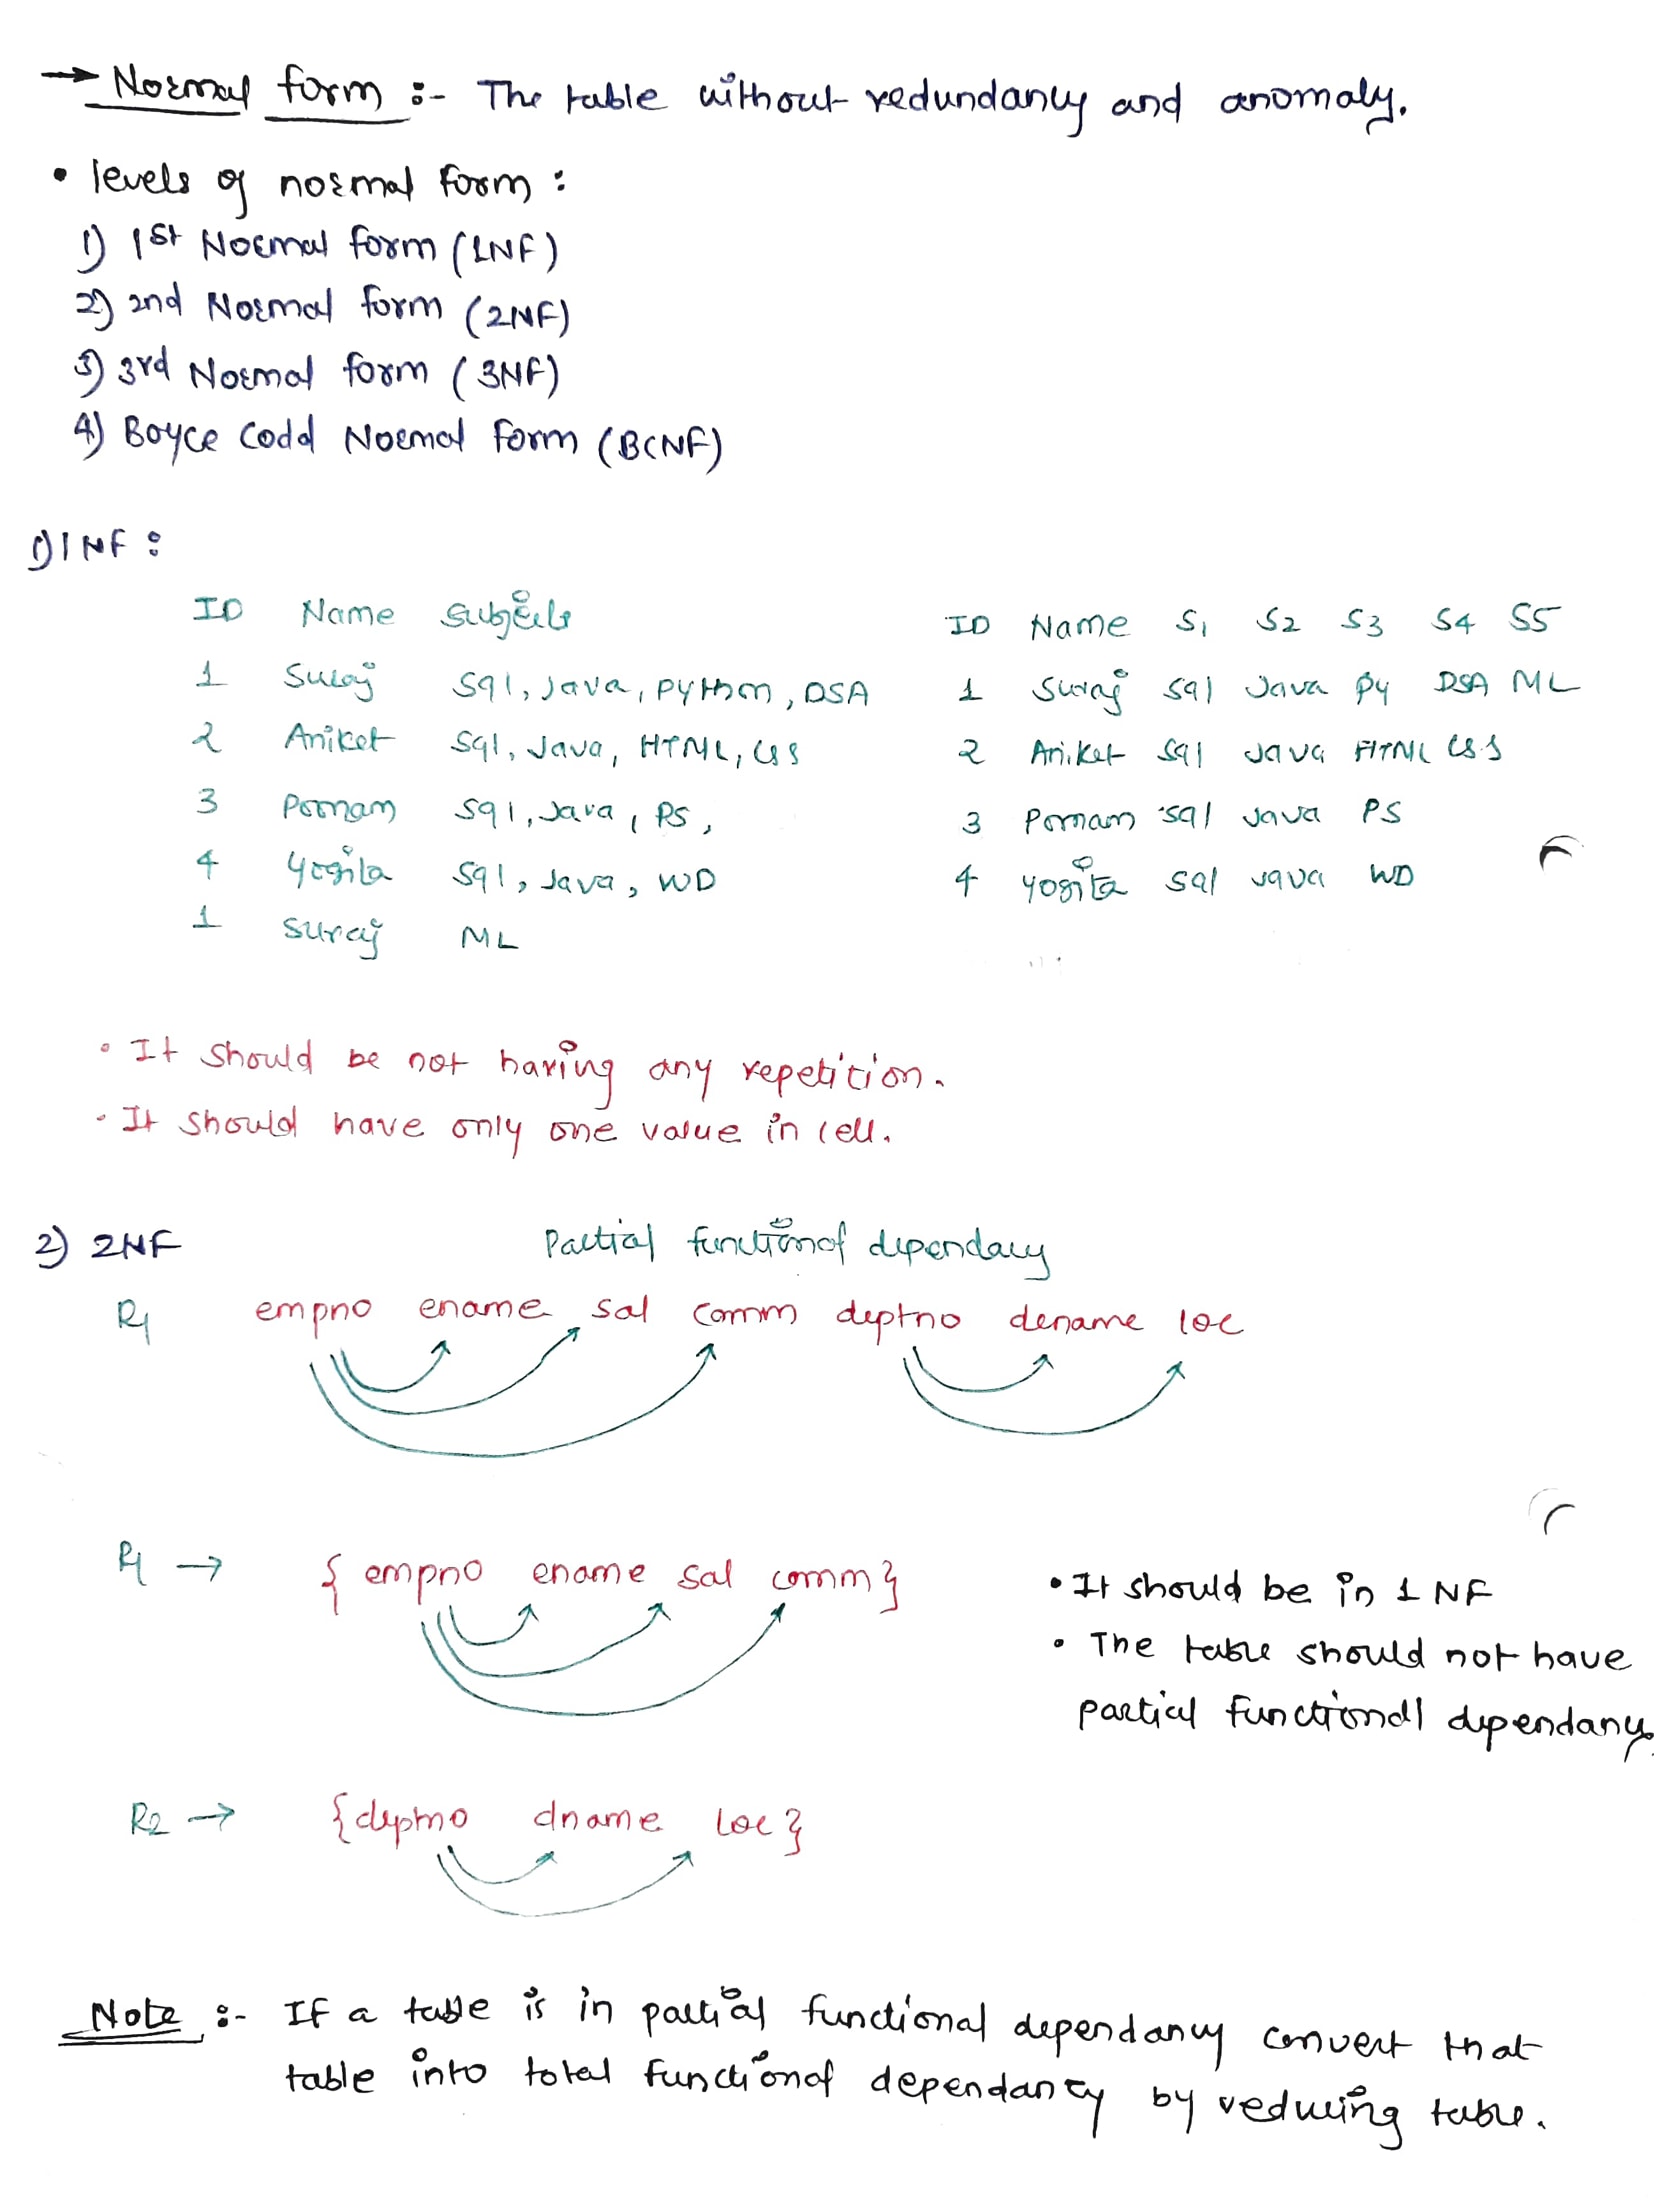 → Normal form :- The table without redundancy and anomaly.
• levels of normal form :
1) 1st Normal form (1NF)
2) 2nd Normal form (2NF)
3) 3rd Normal form (3NF)
4) Boyce Codd Normal form (BCNF)
1) 1NF :
ID Name Subjects
1 Suraj Sql, Java, Python, DSA
2 Aniket Sql, Java, HTML, CSS
3 Poonam Sql, Java, PS,
4 Yogita Sql, Java, WD
1 Suraj ML
ID Name S1 S2 S3 S4 S5
1 Suraj Sql Java Py DSA ML
2 Aniket Sql Java HTML CSS
3 Poonam Sql Java PS
4 Yogita Sql Java WD
• It should be not having any repetition.
• It should have only one value in cell.
2) 2NF Partial functional dependancy
R1 empno ename sal comm deptno dename loc
R1 → { empno ename sal comm}
• It should be in 1 NF
• The table should not have
partial functionall dependancy.
R2 → {deptno dname loc}
Note :- If a table is in partial functional dependancy convert that
table into total functional dependancy by reducing table.